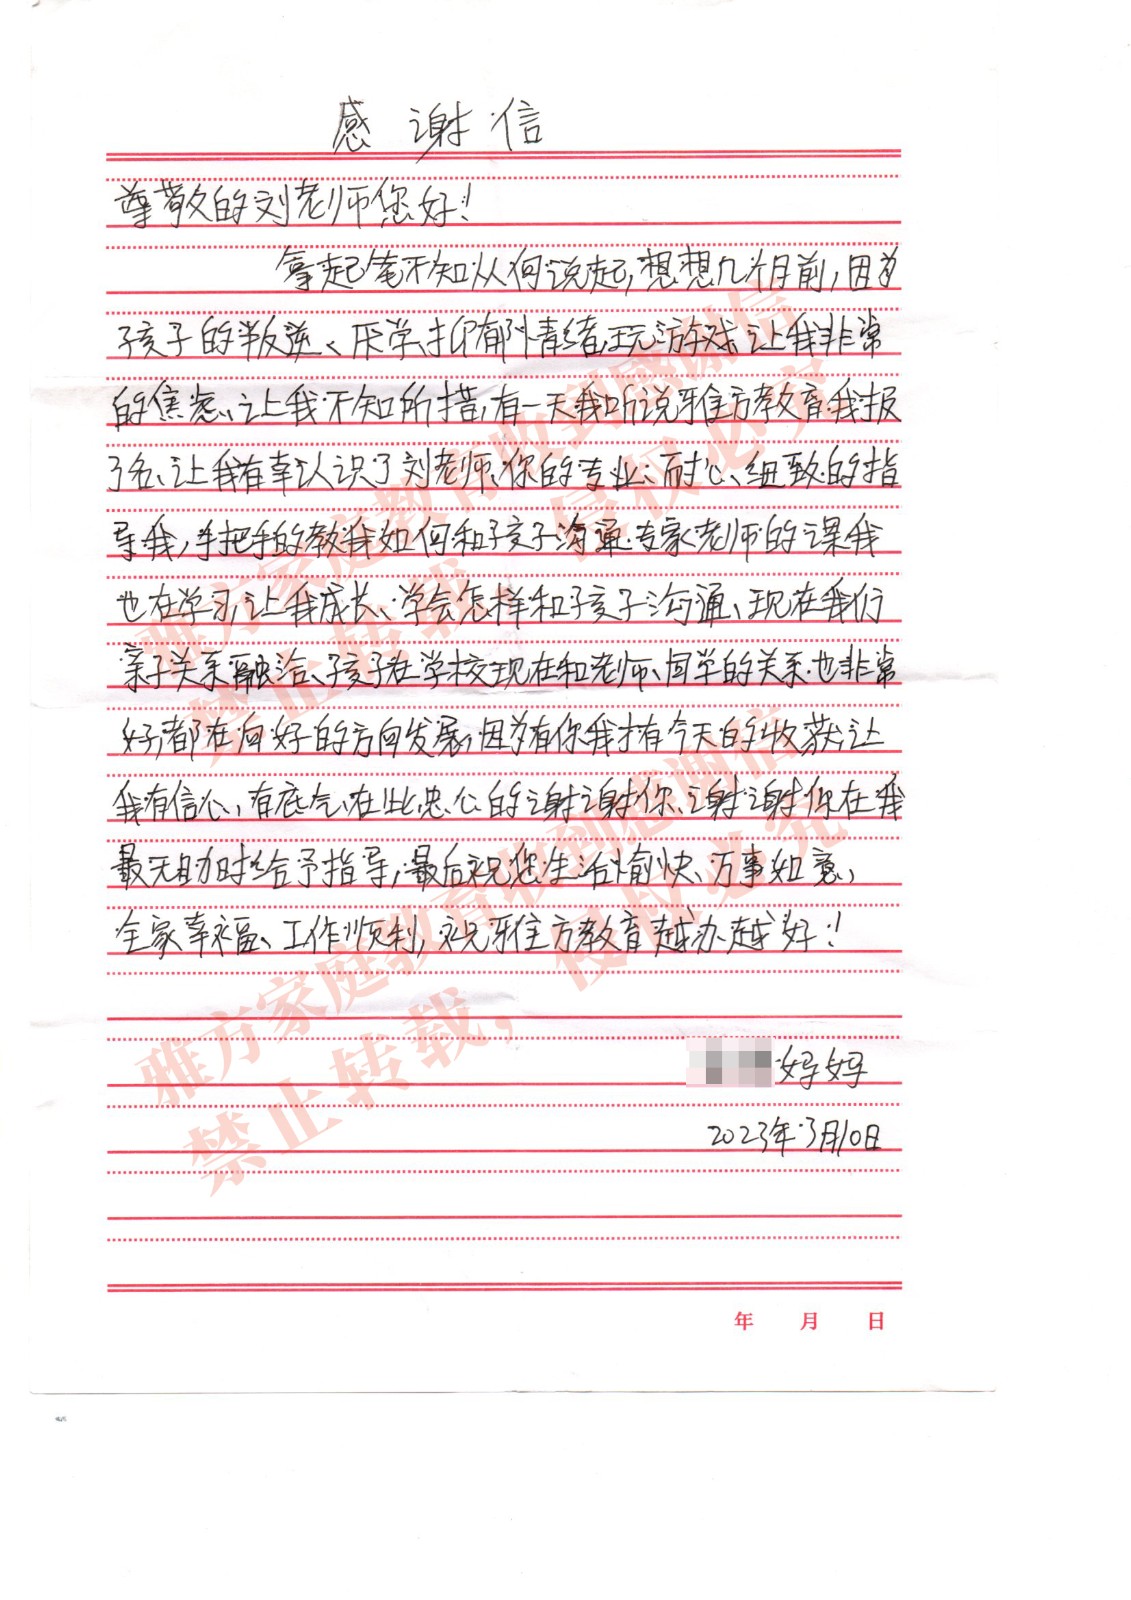 感谢信
尊敬的刘老师您好！
拿起笔不知从何说起，想想几个月前，因为
孩子的叛逆、厌学、抑郁情绪，玩游戏让我非常
的焦虑、让我不知所措，有一天我听说雅方教育，我报
了名、让我有幸认识了刘老师、你的专业、耐心、细致的指
导我，手把手的教我如何和孩子沟通，专家老师的课我
也在学习，让我成长、学会怎样和孩子沟通、现在我们
亲子关系融洽、孩子在学校现在和老师、同学的关系也非常
好，都在向好的方向发展，因为有你我才有今天的收获，让
我有信心、有底气，在此忠心的谢谢你、谢谢你在我
最无助时给予指导，最后祝您生活愉快、万事如意，
全家幸福、工作顺利，祝雅方教育越办越好！
妈妈
2023年3月10日
年 月 日
雅方家庭教育收到感谢信
禁止转载，侵权必究
雅方家庭教育收到感谢信
禁止转载，侵权必究